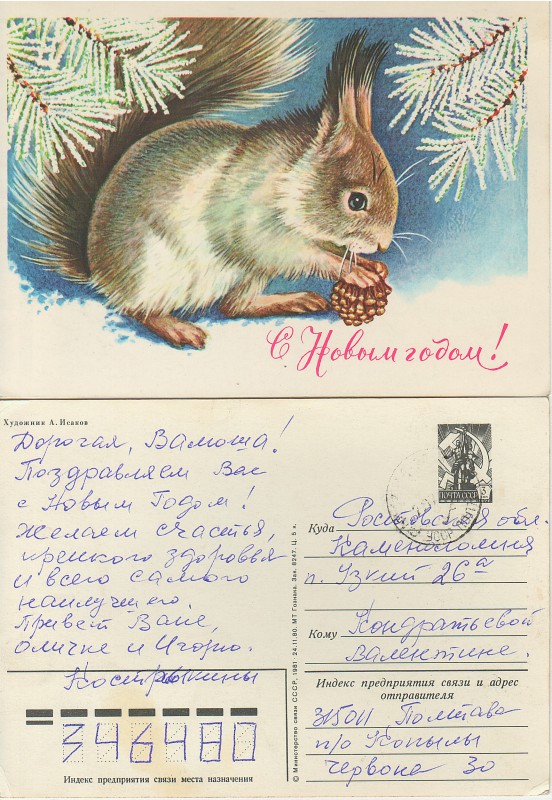 С Новым годом!
Художник А. Исаков
Дорогая, Валюша!
Поздравляем Вас
с Новым Годом!
Желаем счастья,
крепкого здоровья
и всего самого
наилучшего.
Привет Ване,
Оличке и Игорю.
Кострыкины
346480
Индекс предприятия связи места назначения
© Министерство связи СССР, 1981 24.11.80. МТ Гознака. Зак. 8247. Ц. 5 к.
ПОЧТА СССР
Куда Ростовская обл.
Каменоломня
п. Узкий 26а
Кому Кондратьевой
Валентине.
Индекс предприятия связи и адрес
отправителя
315011 Полтава
п/о Копылы
Червона 30